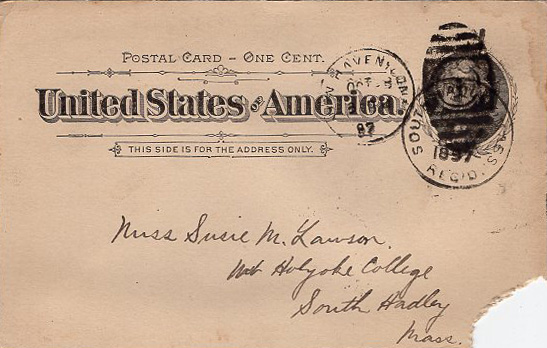 POSTAL CARD – ONE CENT.
United States of America.
THIS SIDE IS FOR THE ADDRESS ONLY.
HAVEN, CONN
OCT
97
SOUTH
MASS
1897
REC'D.
Miss Susie M. Lawson.
Mt Holyoke College
South Hadley
Mass.